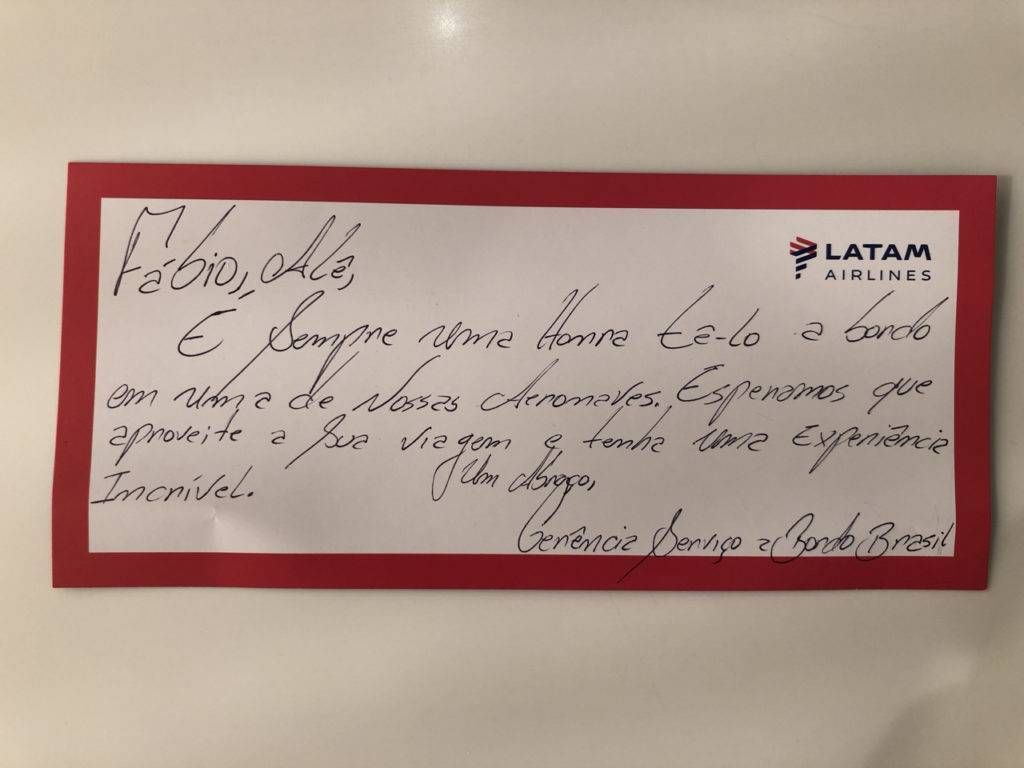 Fábio, Alê,
LATAM
AIRLINES
É Sempre uma Honra tê-lo a bordo
em uma de Nossas Aeronaves. Esperamos que
aproveite a Sua viagem e tenha uma Experiência
Incrível.
Um Abraço,
Gerência Serviço a Bordo Brasil